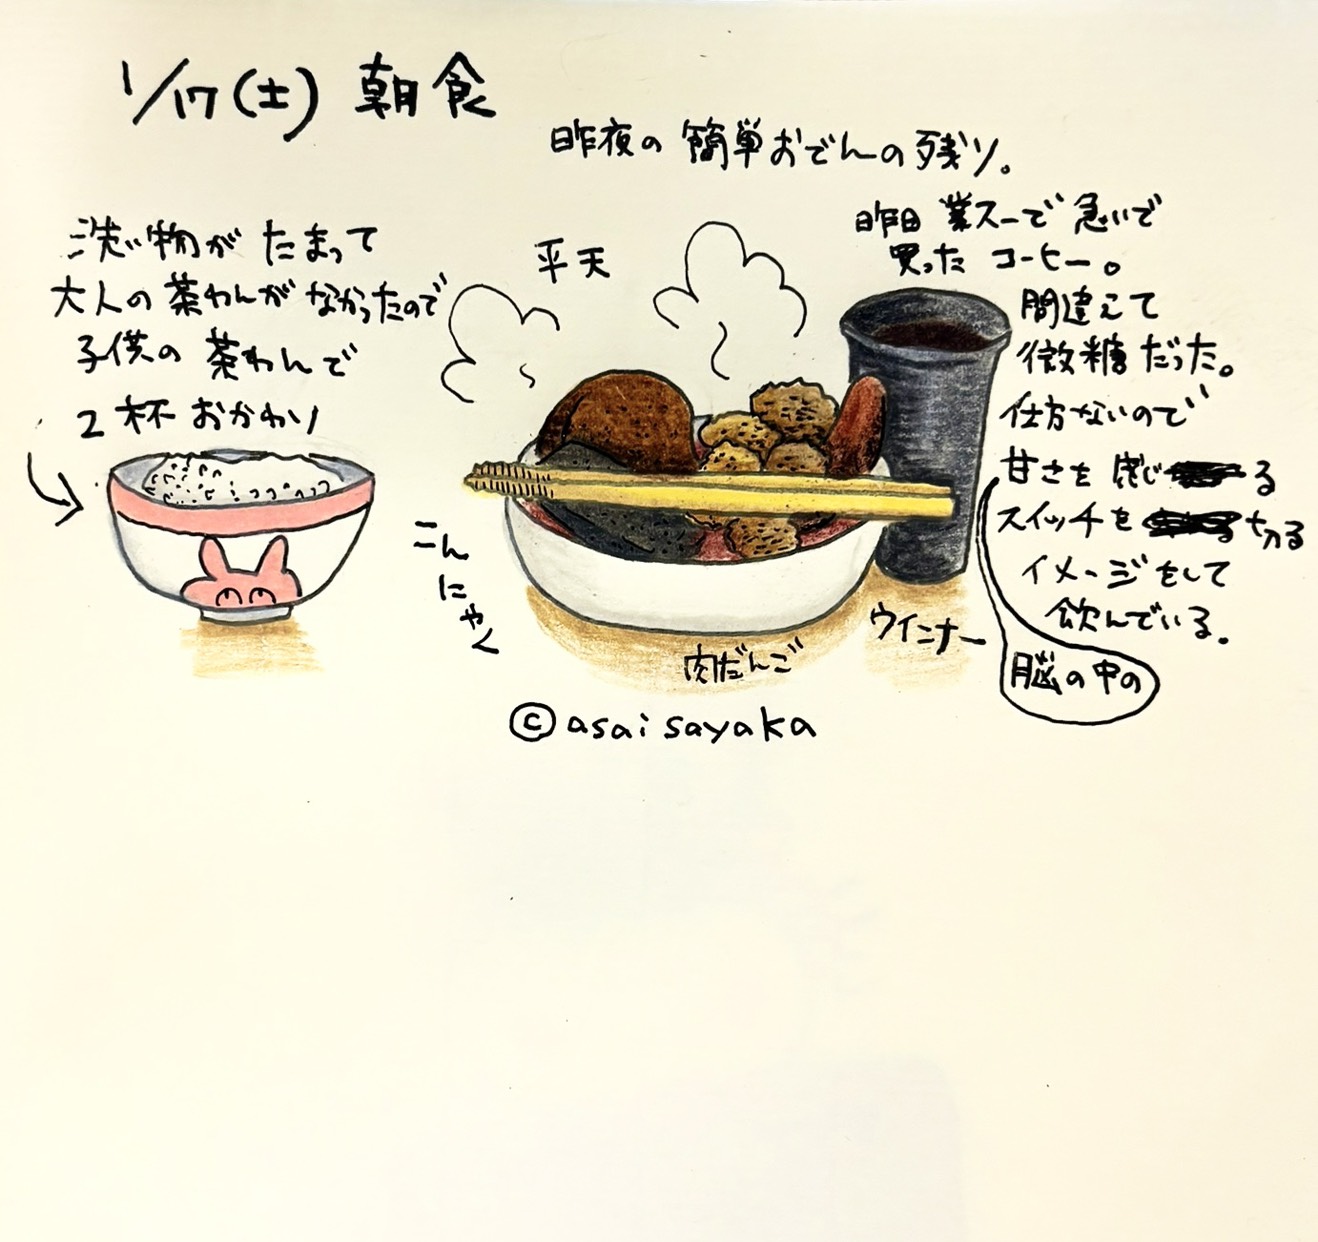 1/17(土) 朝食
昨夜の簡単おでんの残り。
洗い物がたまって
大人の茶わんがなかったので
子供の茶わんで
2杯おかわり
平天
こんにゃく
肉だんご
ウインナー
昨日業スーで急いで
買ったコーヒー。
間違えて
微糖だった。
仕方ないので
甘さを感じる
スイッチを切る
イメージをして
飲んでいる。
脳の中の
©asai sayaka